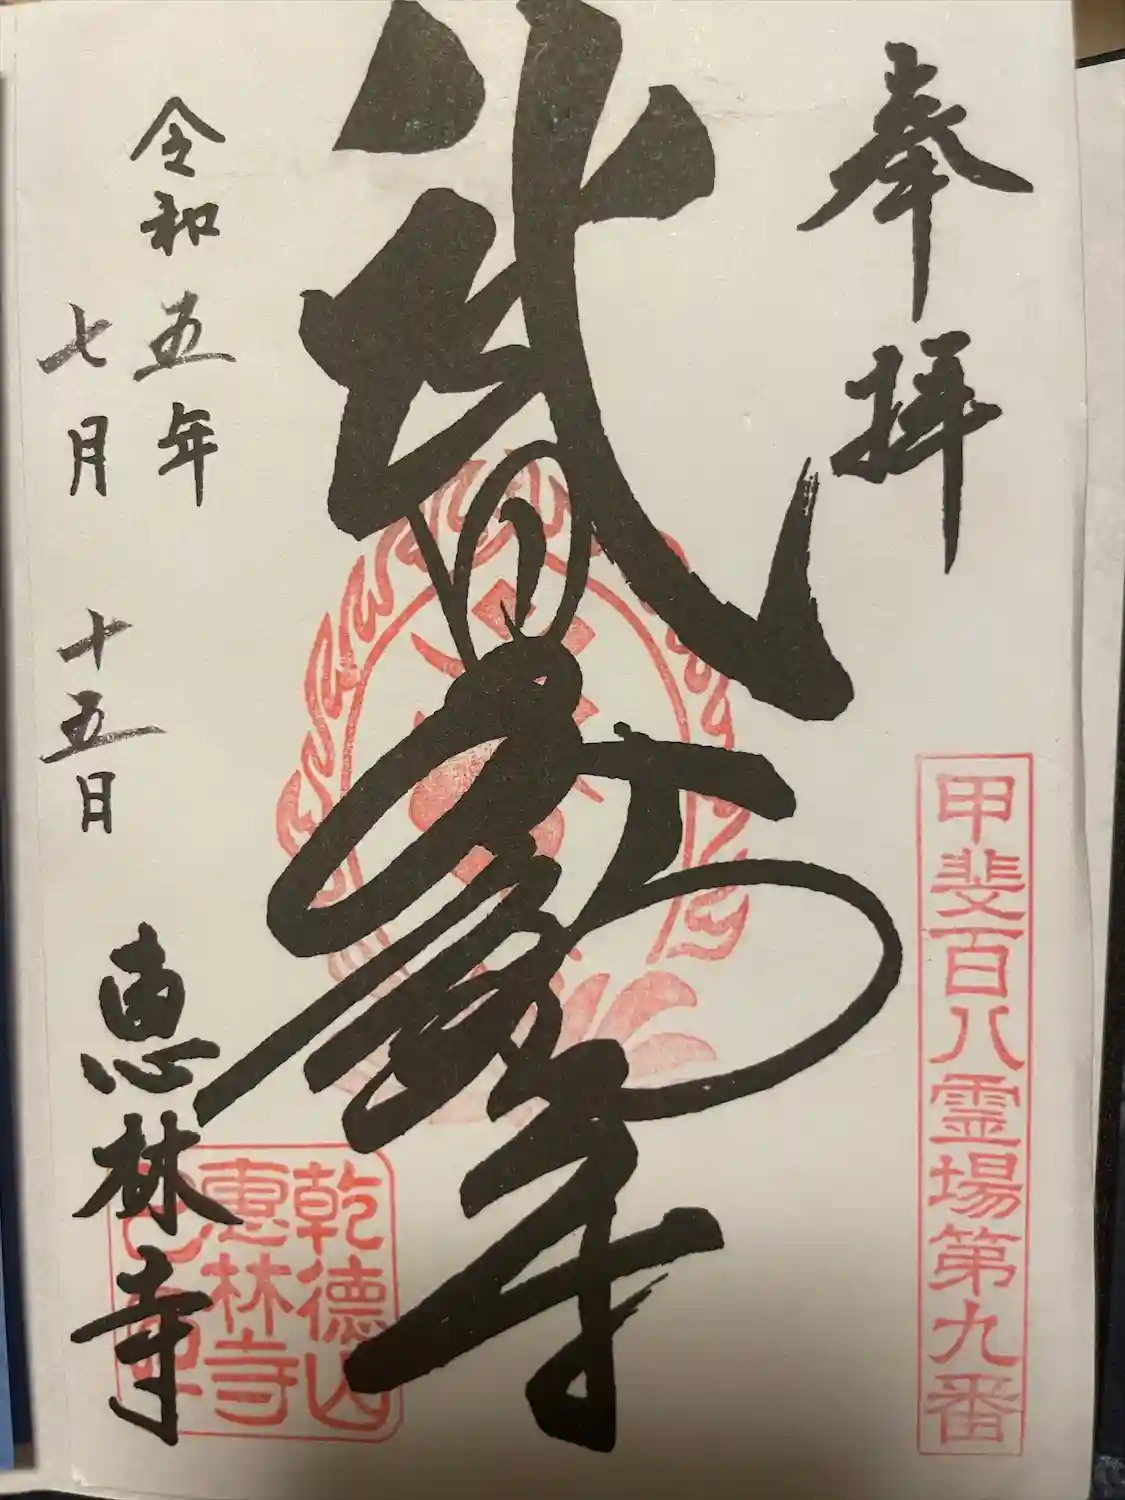 奉拝
甲斐百八霊場第九番
武田不動尊
令和五年
七月十五日
恵林寺
乾徳山
恵林寺